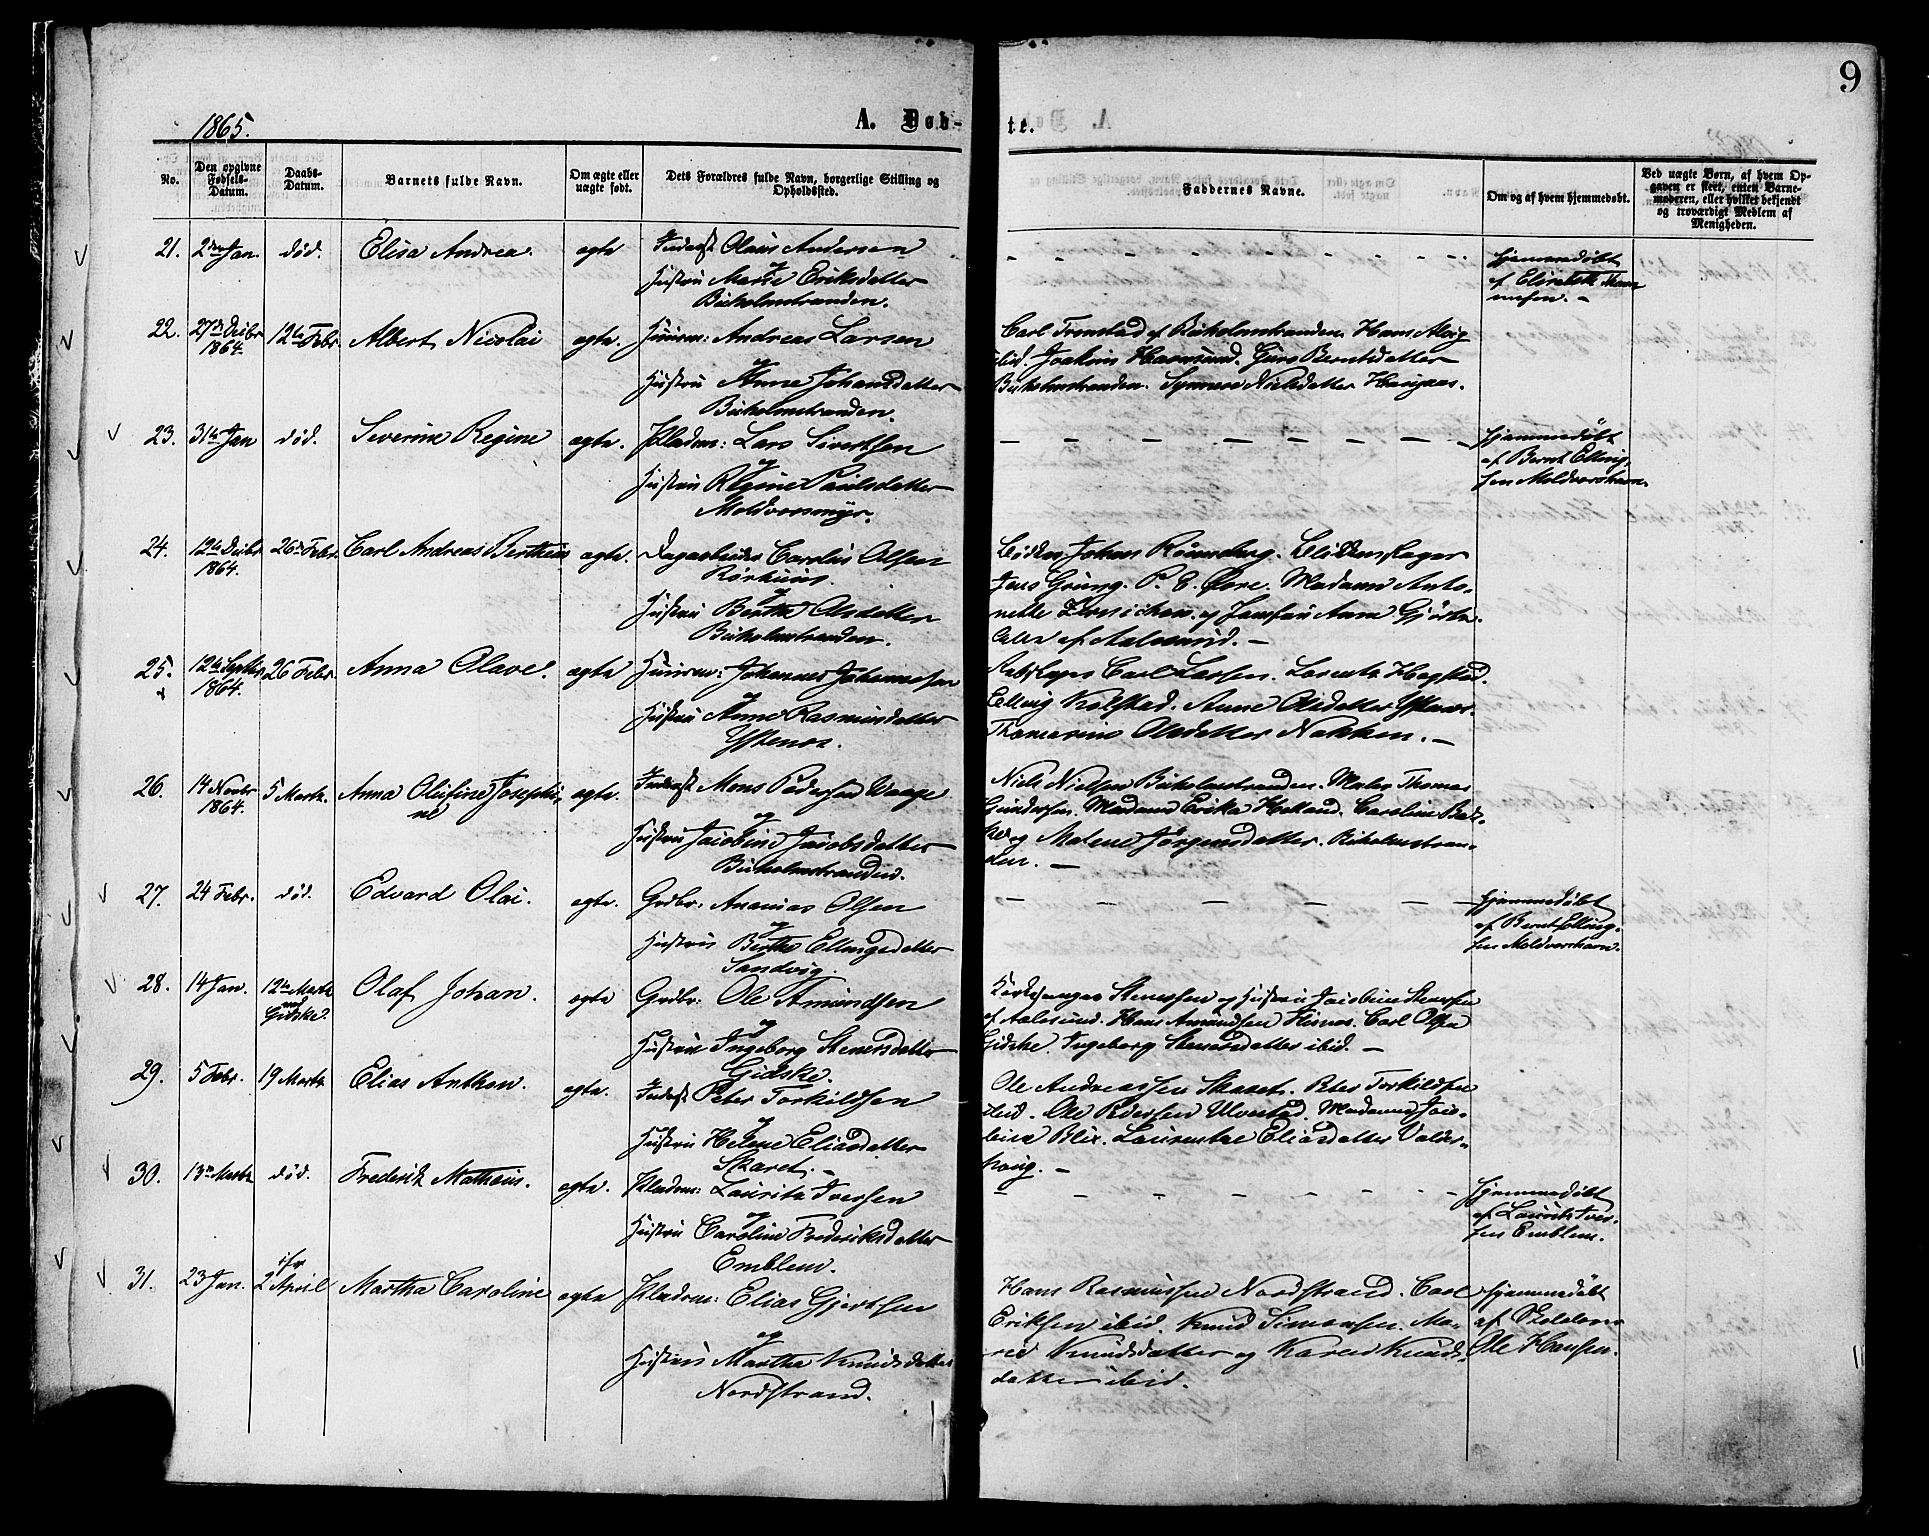 9
1865.
A. Døb-
te.
No.
Den opgivne Fødsels-Datum.
Daabs-Datum.
Barnets fulde Navn.
Om ægte eller uægte født.
Dets Forældres fulde Navn, borgerlige Stilling og Opholdssted.
Faddernes Navne.
Om og af hvem hjemmedøbt.
Ved uægte Børn, af hvem Opgaven er skeet, enten Barnemoderen, eller hvilket bekjendt og troværdigt Medlem af Menigheden.
21. 2den Jan. død. Elisa Andrea. ægte Inderst Olaus Andersen
og
Hustru Marte Eriksdatter
Buholmstranden.
Hjemmedøbt
af Elisabeth
22. 27de Decbr 1864. 12te Febr. Albert Nicolai ægte. Huusm: Andreas Larsen
Hustru Anne Johansdatter
Buholmstranden.
Carl Tronstad af Buholmstranden. Hans
ibid. Joakim. Berntsdatter
Buholmstranden. Synneve Nielsdatter
23. 31te Jan død. Severine Regine ægte. Pladsm: Lars Sivertsen
og
Hustru Regine Paulsdatter
Moldværsmyr.
Hjemmedøbt
af Bernt Elling-
sen Moldværshavn.
24. 12te Decbr 1864. 26de Febr. Carl Andreas Bertheus ægte. Dagarbeider Carolus Olsen
og
Hustru Berthe Olsdatter
Buholmstranden.
Johan Rønneberg.
Jens Grung. P. E. Øvre. Madame Anto-
nette og Jomfru Anne
af Aalesund. —
25. 12te Septbr 1864. 26 Febr. Anna Olave. ægte Huusm: Johannes Johannessen
og
Hustru Anne Rasmusdatter
Ystenes.
Carl Larsen. Lorentz Hagstad.
Elling Kolstad. Anne Olsdatter Ystenes.
Thomasine Olsdatter Nakken. —
26. 14 Novbr 1864. 5 Marts. Anna Olufine Josephi-
ne ægte. Inderst Mons Pedersen Vaage
og
Hustru Jacobine Jacobsdatter
Buholmstranden.
Niels Nielsen Buholmstranden. Maler Thomas
Gundersen. Madame Erika Helland. Caroline
Malene Jørgensdatter. Buholmstran-
den. —
27. 24 Febr. død. Edvard Olai. ægte. Grdbr: Ananias Olsen
og
Hustru Berthe Ellingsdatter
Sandvig.
Hjemmedøbt
af Bernt Elling-
sen Moldværshavn.
28. 14 Jan. 12te Marts
ved
Gidske. Olaf Johan. ægte Grdbr: Ole Amundsen
og
Hustru Ingeborg Stenersdatter
Gidske.
Kirkesanger Stenersen og Hustru Jacobine Stenersen
af Aalesund. Hans Amundsen. Carl Olsen
Gidske. Ingeborg Stenersdatter ibid. —
29. 5 Febr. 19 Marts. Elias Anthon. ægte. Inderst Peter Torkildsen
og
Hustru Helene Eliasdatter
Skaret. —
Ole Andreassen Skaret. Peter Torkildsen
ibid. Ole Pedersen Ulvestad. Madame Jaco-
bine Blix. Laurentse Eliasdatter Valder-
houg. —
30. 13de Marts død. Frederik Matheus. ægte. Pladsm: Lauritz Iversen
og
Hustru Caroline Frederiksdatter
Emblem.
Hjemmedøbt
af Lauritz Iver-
sen Emblem.
31. 23 Jan. 2 April Martha Caroline ægte Pladsm: Elias Gjertsen
og
Hustru Martha Knudsdatter
Nordstrand.
Hans Rasmussen Nordstrand. Carl
Eriksen ibid. Knud Simonsen. Ma-
ren Knudsdatter og Karen Knuds-
datter ibid.
Hjemmedøbt
af Skolelærer
Ole Hansen.